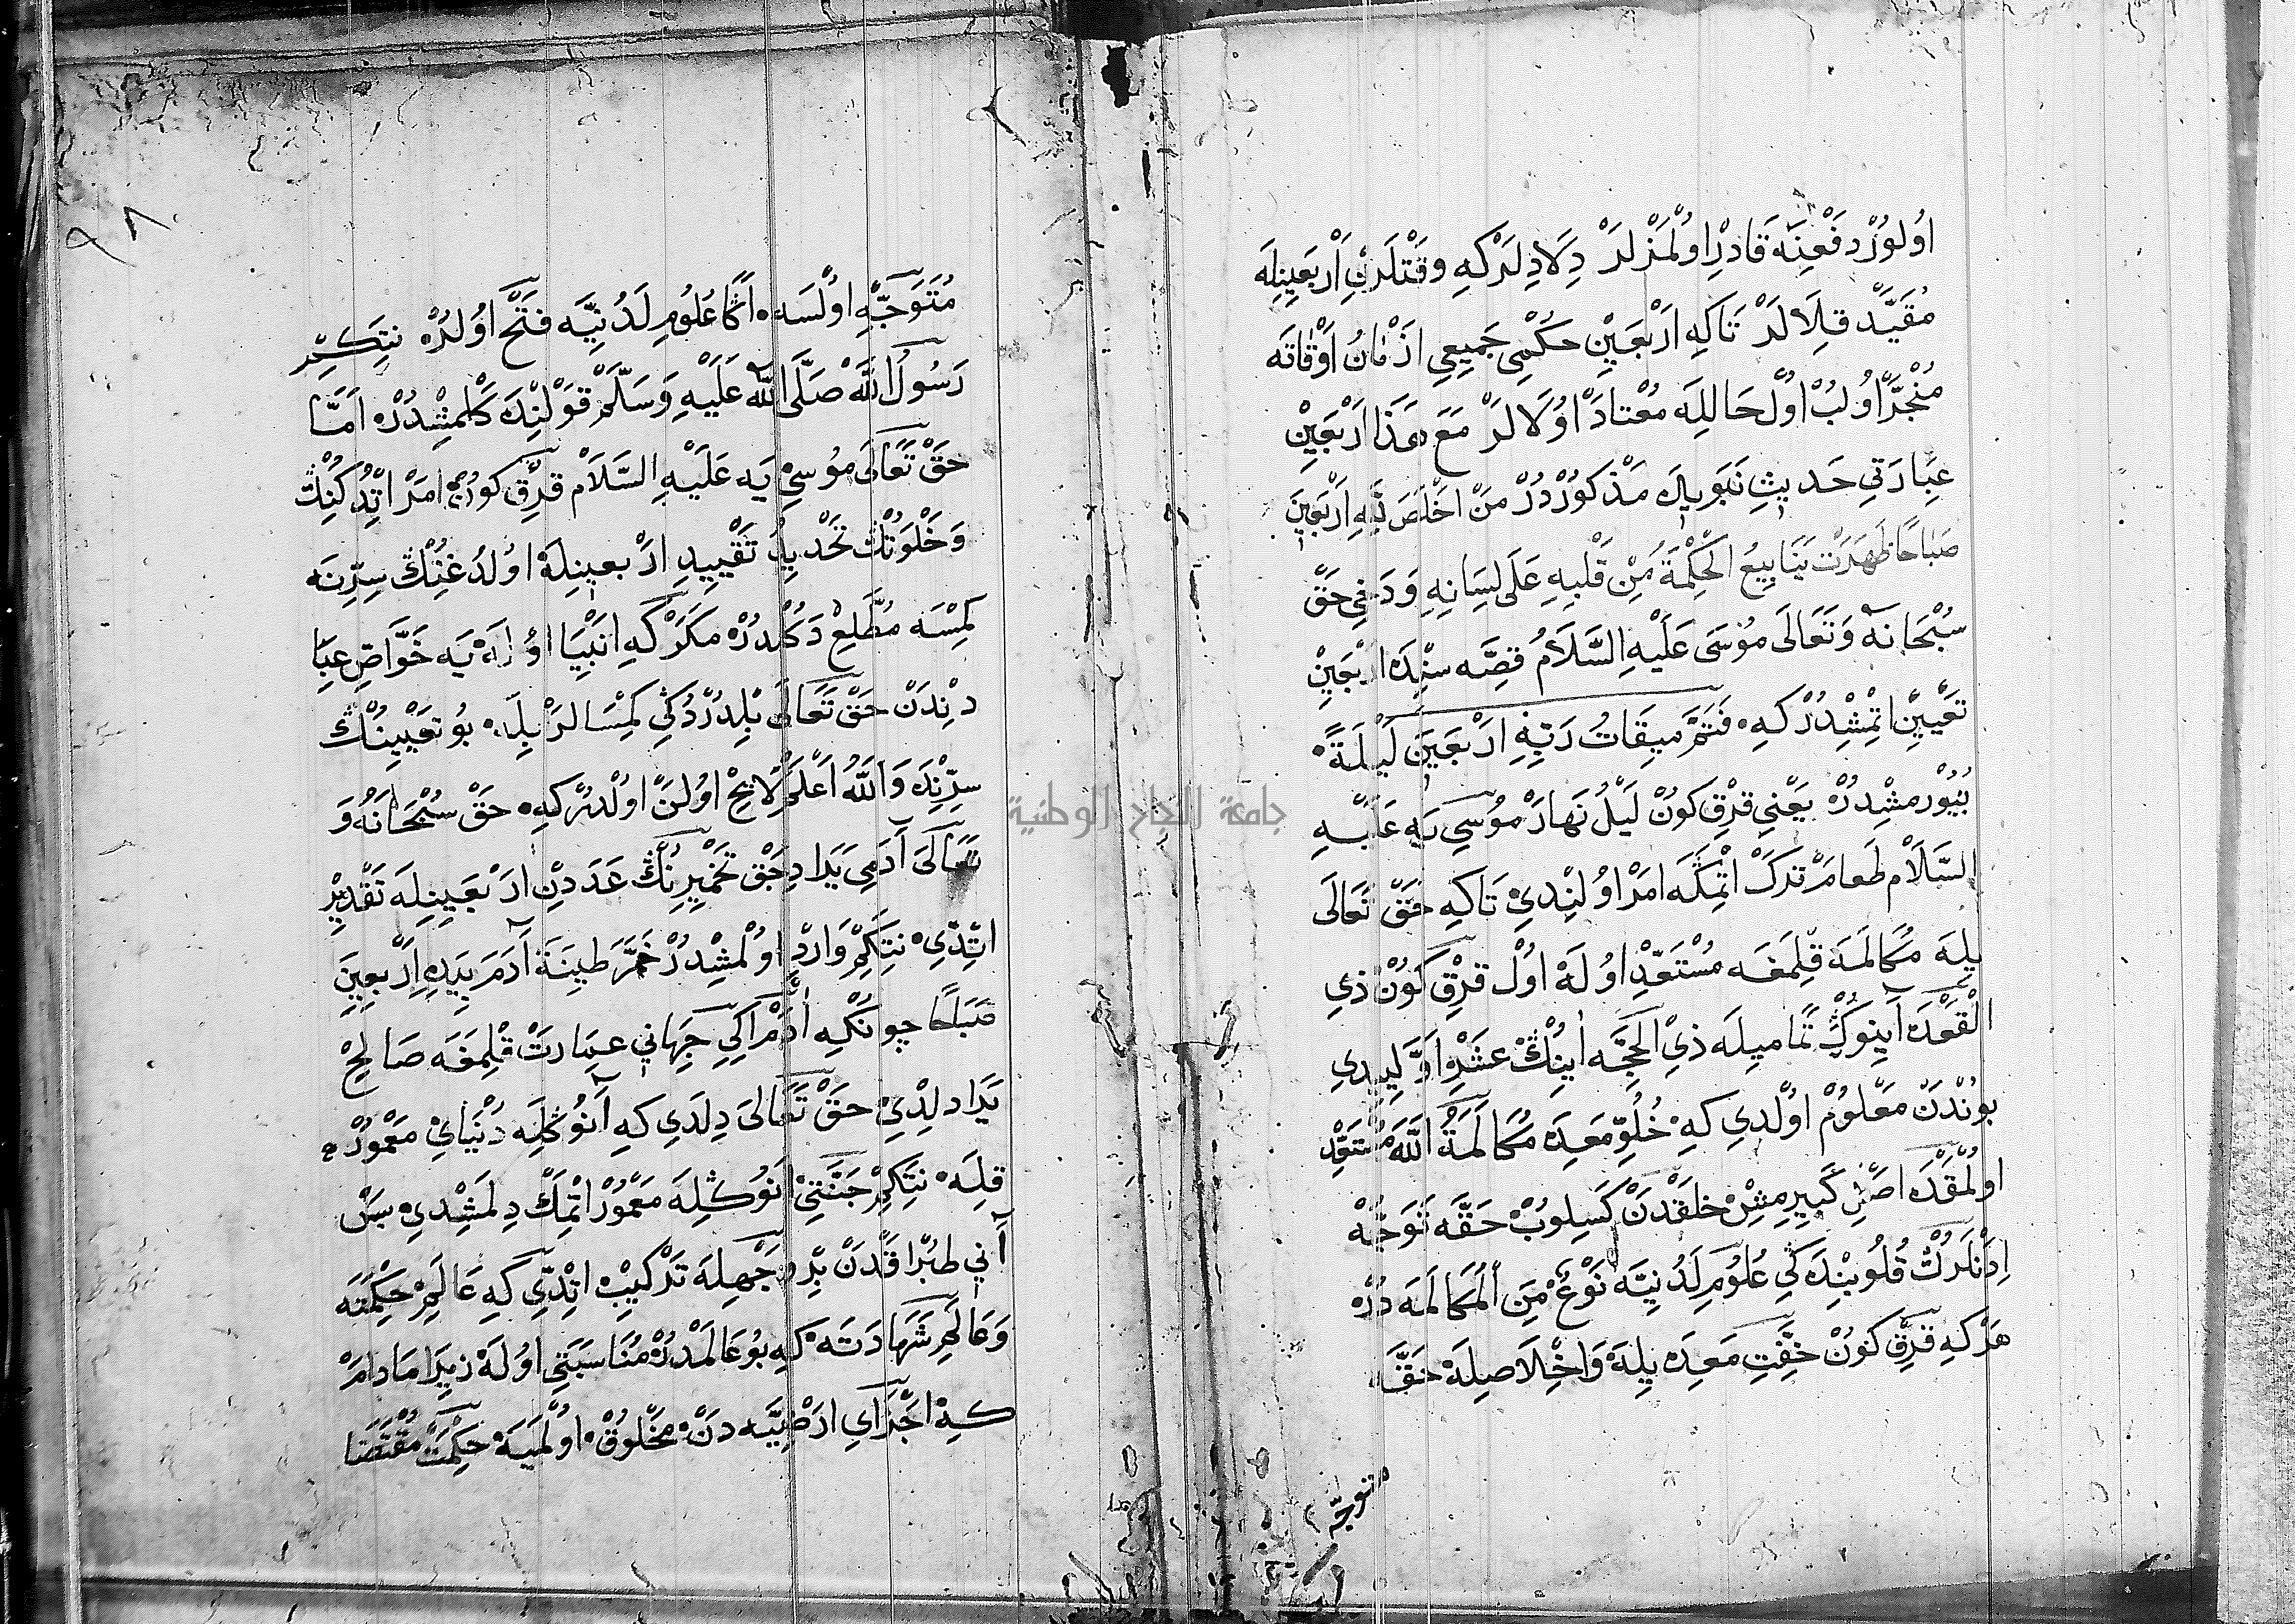 اُولوُرْ دفْعِنَه قَادِرْ اوُلْمَزْلَرْ دِلَادِلَرْكِه وقْتلَرِنِ اَرْبَعِينِلَه
مُقَيَّد قِلَالَرْ تَاكِه اَرْبَعِينْ حكْمِي جَمِيعِ اَزْمَانُ اَوْقَاتَه
مُنْجَرّ اوُلُبْ اوُلْ حَاللِه مُعْتادْ اوُلَالَرْ مَعَ هَذَا اَرْبَعِينْ
عِبَارَتِي حَديثِ نَبَوِيلَه مَذْكوُرْدُرْ مَنْ اَخْلَصَ لِلّهِ اَرْبَعِينَ
صَبَاحًا ظَهَرَتْ يَنَابِيعُ الْحِكْمَةُ مِنْ قَلْبِهِ عَلَى لِسَانِهِ وَدَخِي حَقّ
سُبْحَانَهُ وَتَعَالَى مُوسَى عَلَيْهِ السَّلَامُ قِصَّه سِنْدَه اَرْبَعِينْ
تَعْيِينْ اتْمِشْدُرْكِه فَتَمَّ مِيقَاتُ رَبِّهِ اَرْبَعِينَ لَيْلَةً
بُيُورمِشْدُرْ يَعْنِي قِرْقِ كوُنْ لَيْلُ نَهارْ مُوسَي يَه عَلَيْهِ
السَّلَامْ طَعامْ تَركْ اتْمِكَه امَرْ اوُلِنْدِيْ تَاكِه حَقّ تَعَالَى
يِلَه مُكَالَمَه قِلمَغَه مُسْتَعَدّ اوُلَه اوُل قِرْقِ كوُنْ ذِي
الْقَعْدَه آيِنوُڭ تَمامِيلَه ذِيْ الْحِجَّه اَينُڭْ عَشْرِ اَوَّلِيدِي
بوُندَنْ مَعْلُومْ اوُلْدِي كِه خُلُوِّ مَعِدَه مُكَالَمَةُ اللّه مُسْتَعِدّ
اوُلمَقْدَه اَصْلِ كَبِيرمِشْ خلقدَنْ كَسِلوُبْ حَقَّه تَوَجُّهْ
اِدَنْلَرُڭْ قُلُوبِنْدَه كِي عُلُومِ لَدُنِيَّه نَوْعٌ مِنَ الْمُكَالَمَه دُرْ
هَرْكِه قِرْقِ كوُنْ خِفَّتِ مَعِدَه يِلَه وَاخْلَاصِلَه حَقَّه
متوجّه
٩٨
مُتَوَجِّه اوُلْسَه اَڭَا عُلُومِ لَدُنِيَّه فَتْحْ اوُلُرْ نتَكِمْ
رَسُولُ اللّهْ صَلَّى اللّه عَلَيْهِ وَسَلَّمْ قَوْلِنْدَه كَلْمِشْدُرْ اَمَّا
حَقْ تَعَالَى مُوسِيْ يَه عَلَيْهِ السَّلَامْ قِرْقِ كوُنْ امَرْ اتْدُكِنُڭْ
وَخَلْوَتُڭْ تَحْدِيدِ تَقْيِيدِ اَرْبعِينِلَه اوُلدُغِنُڭ سِرِّنَه
كِمْسَه مُطَّلِعْ دَكُلدُرْ مَكَرْكِه اَنبِيَا اوُلَه يَه خَوَّاصِ عِبَا
دِنْدَنْ حَقْ تَعَالَى بِلْدُرْدُكِي كِمْسَالَرْ بِلَه بوُ تَعْيِينُڭْ
سِرِّنْدَه وَاللّهُ اَعْلَمْ لَايِحْ اوُلَنْ اوُلْدُرْكِه حَقْ سُبْحَانَهُ وَ
تَعَالَى آدَمِى يَرَادِجَقْ تَخْمِيرِنُڭْ عَدَدِنْ اَرْبَعِينِلَه تَقْدِيرْ
اتْدِيْ نتَكِمْ وَارِدْ اوُلْمِشْدُرْ خَمَّرَ طِينَةَ آدَمَ بِيَدِهِ اَرْبَعِينَ
صَبَاحًا چونْكِه آدَمْ اِكِي جَهَانِي عِمَارتْ قِلْمِغَه صَالِحْ
يَرَادلِدِيْ حَقْ تَعَالَى دِلَدِي كِه آنوُڭلَه دُنْيَايْ مَعْمُورْ
قِلَه نتَكِمْ جَنَّتِيْ آنوُڭلَه مَعْمُورْ اتْمِكْ دِلَمِشْدِيْ بَسْ
آنِي طُبْرَاقْدَنْ بِرْ وَجْهِلَه تَرْكِيبْ اتْدِيْ كِه عَالَمِ حِكْمَتَه
وَعَالَمِ شَهَادَتَه كِه بوُ عَالَمْدُرْ مُنَاسَبَتِي اوُلَه زِيرَا مَادَامْ
كِه اَجْزَاءِ اَرْضِيَّه دَنْ مَخْلُوقْ اوُلْمَيَه حِكْمَتْ مُقْتَضَا
جامعة النجاح الوطنية